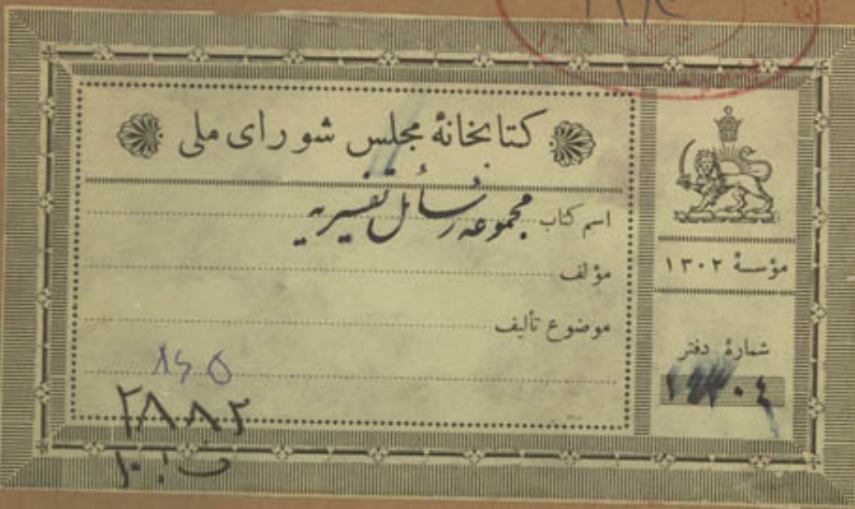 کتابخانهٔ مجلس شورای ملی
اسم کتاب مجموعه رسائل تفسیریه
مؤلف
موضوع تألیف
مؤسسهٔ ۱۳۰۲
شمارهٔ دفتر
۲۸۸۲